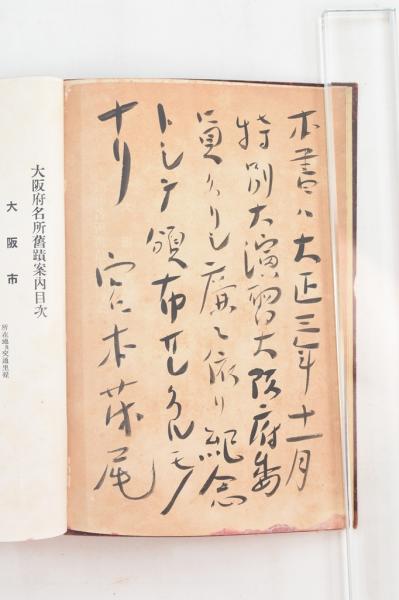 本書ハ大正三年十一月
特別大演習大阪府委
員タリシ廉ニ依リ紀念
トシテ頒布サレタルモノ
ナリ 宮本茂尾
大阪府名所舊蹟案內目次
大阪市
所在地ト交通里程